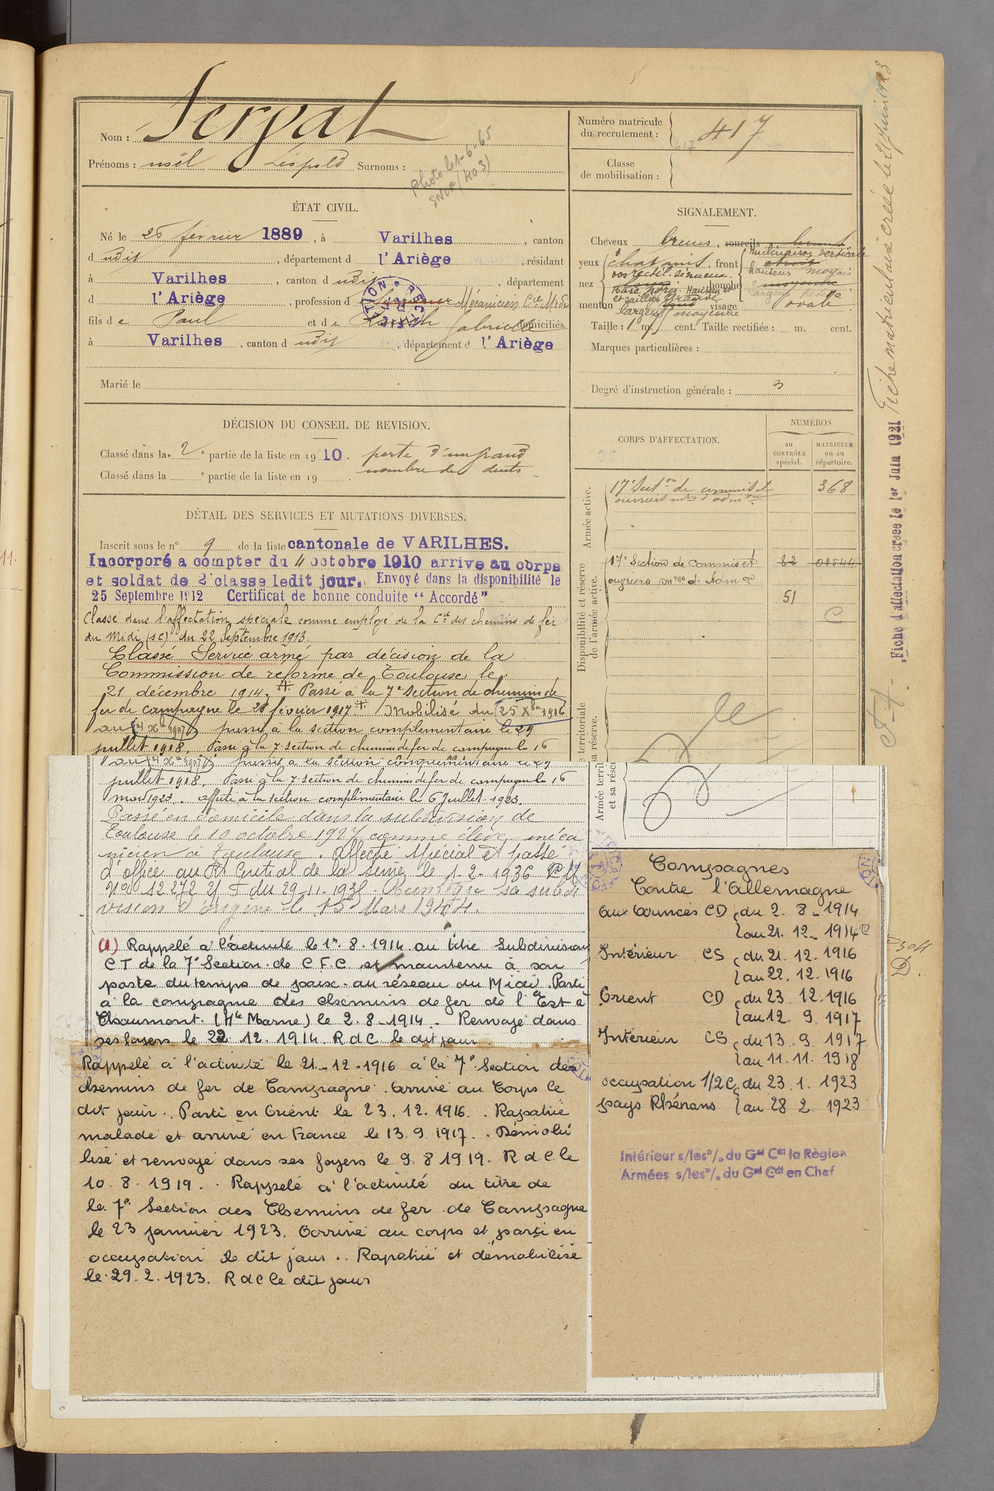 Nom : Sergat
Prénoms : noël Léopold Surnoms :
Photo le 1-6-65
Numéro matricule du recrutement : 417
Classe de mobilisation :
ÉTAT CIVIL.
Né le 25 février 1889, à Varilhes, canton
dudit, département d l'Ariège, résidant
à Varilhes, canton dudit, département
d l'Ariège, profession d Mécanicien Cie Midi
fils de Paul et de Gabrielle domiciliés
à Varilhes, canton dudit, département d l'Ariège
Marié le
SIGNALEMENT.
Cheveux bruns, sourcils
yeux chatains, front
nez bouche
menton visage ovale
Taille : 1 m. cent. Taille rectifiée : m. cent.
Marques particulières :
Degré d'instruction générale : 3
DÉCISION DU CONSEIL DE REVISION.
Classé dans la 2e partie de la liste en 1910. perte d'un grand
nombre de dents
Classé dans la e partie de la liste en 19
CORPS D'AFFECTATION.
NUMÉROS
au CONTRÔLE spécial.
MATRICULE ou au répertoire.
Armée active.
17e Section de commis et 368
ouvriers
Disponibilité et réserve de l'armée active.
17e Section de commis et
ouvriers
51
C
DÉTAIL DES SERVICES ET MUTATIONS DIVERSES.
Inscrit sous le n° 9 de la liste cantonale de VARILHES.
Incorporé à compter du 4 octobre 1910 arrivé au corps
et soldat de 2e classe ledit jour. Envoyé dans la disponibilité le
25 Septembre 1912 Certificat de bonne conduite "Accordé"
Classé dans l'affectation spéciale comme employé de la Cie des chemins de fer
du Midi (SC) du 22 septembre 1913
Classé Service armé par décision de la
Commission de réforme de Toulouse le
21 décembre 1914. Passé à la 7e section de chemins de
fer de campagne le 28 février 1917 Mobilisé du 25 Xbre 1916
au passé à la section complémentaire le 29
juillet 1918. Passé à la 7 section de chemin de fer de campagne le 16
au passé à la section complémentaire le 29
juillet 1918. Passé à la 7 section de chemin de fer de campagne le 16
mars 1923. affecté à la section complémentaire le 6 Juillet 1923.
Passé en domicile dans la subdivision de
Toulouse le 10 octobre 1927 comme élève méca
nicien à Toulouse. Affecté spécial et passé
d'office au Rt Central de la Seine le 1-2-1936
N° 12272 du 29-11-1935. Réintègre sa subdi
vision d'origine le 15 Mars 1944.
(1) Rappelé à l'activité le 1er 8.1914 au titre subdivision
CT de la 7e Section de C F C et maintenu à son
poste du temps de paix au réseau du Midi. Parti
à la compagne des chemins de fer de l'Est à
Chaumont (Hte Marne) le 2.8-1914. Renvoyé dans
ses foyers le 22.12.1914. R d C le dit jour
Rappelé à l'activité le 21-12-1916 à la 7e Section des
chemins de fer de Campagne. Arrivé au Corps le
dit jour. Parti en Orient le 23.12.1916. Rapatrié
malade et arrivé en France le 13.9.1917. Démobi
lisé et renvoyé dans ses foyers le 9.8.1919. R d C le
10.8.1919. Rappelé à l'activité au titre de
la 7e Section des Chemins de fer de Campagne
le 23 janvier 1923. Arrivé au corps et parti en
occupation le dit jour. Rapatrié et démobilisé
le 29.2.1923. R d C le dit jour
Campagnes
Contre l'Allemagne
aux Armées CD du 2.8-1914
au 21.12-1914
Intérieur CS du 21.12.1916
au 22.12.1916
Orient CD du 23.12.1916
au 12.9.1917
Intérieur CS du 13.9.1917
au 11.11.1918
occupation 1/2 C du 23.1.1923
pays Rhénans au 28.2.1923
Intérieur s/les o/. du Gal Cdt la Région
Armées s/les o/. du Gal Cdt en Chef
Fiche d'affectation créée le 1er Juin 1921
Fiche matriculaire créée le